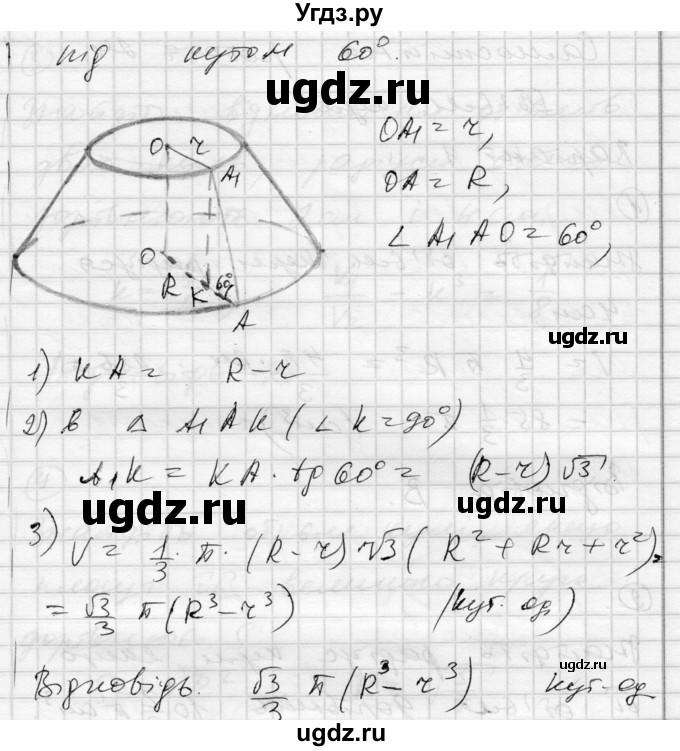 Угдз.ру
під кутом 60°.
ugdz.ru
OA₁ = r,
OA = R,
∠ A₁AO = 60°,
O r A₁
O R K 60° A
ugdz.ru
1) KA = R - r
2) В △ A₁AK (∠K = 90°)
A₁K = KA · tg 60° = (R - r) √3.
ugdz.ru
ugdz.ru
3) V = 1/3 · π · (R - r) √3 (R² + Rr + r²) =
= √3/3 π (R³ - r³) (куб. од)
ugdz.ru
Відповідь. √3/3 π (R³ - r³) куб. од
ugdz.ru